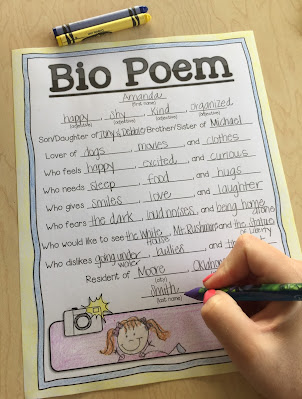 Bio Poem
Amanda
(first name)
happy, shy, kind, organized
(adjective) (adjective) (adjective) (adjective)
Son/Daughter of Tony & Debbie/Brother/Sister of Michael
Lover of dogs, movies, and clothes
Who feels happy, excited, and curious
Who needs sleep, food, and hugs
Who gives smiles, love, and laughter
Who fears the dark, loud noises, and being home alone
Who would like to see the White House, Mt. Rushmore, and the Statue of Liberty
Who dislikes going under water, bullies, and
Resident of Moore, Oklahoma
(city)
Smith
(last name)